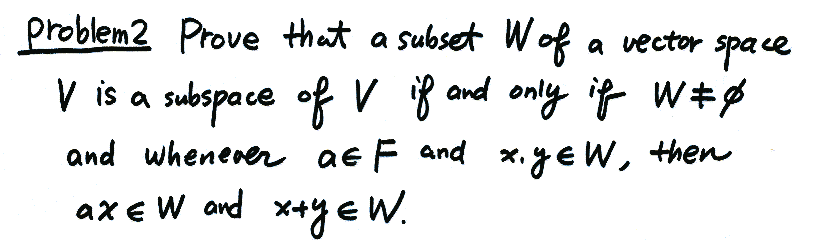 Problem2 Prove that a subset W of a vector space
V is a subspace of V if and only if W ≠ ∅
and whenever a ∈ F and x, y ∈ W, then
ax ∈ W and x+y ∈ W.